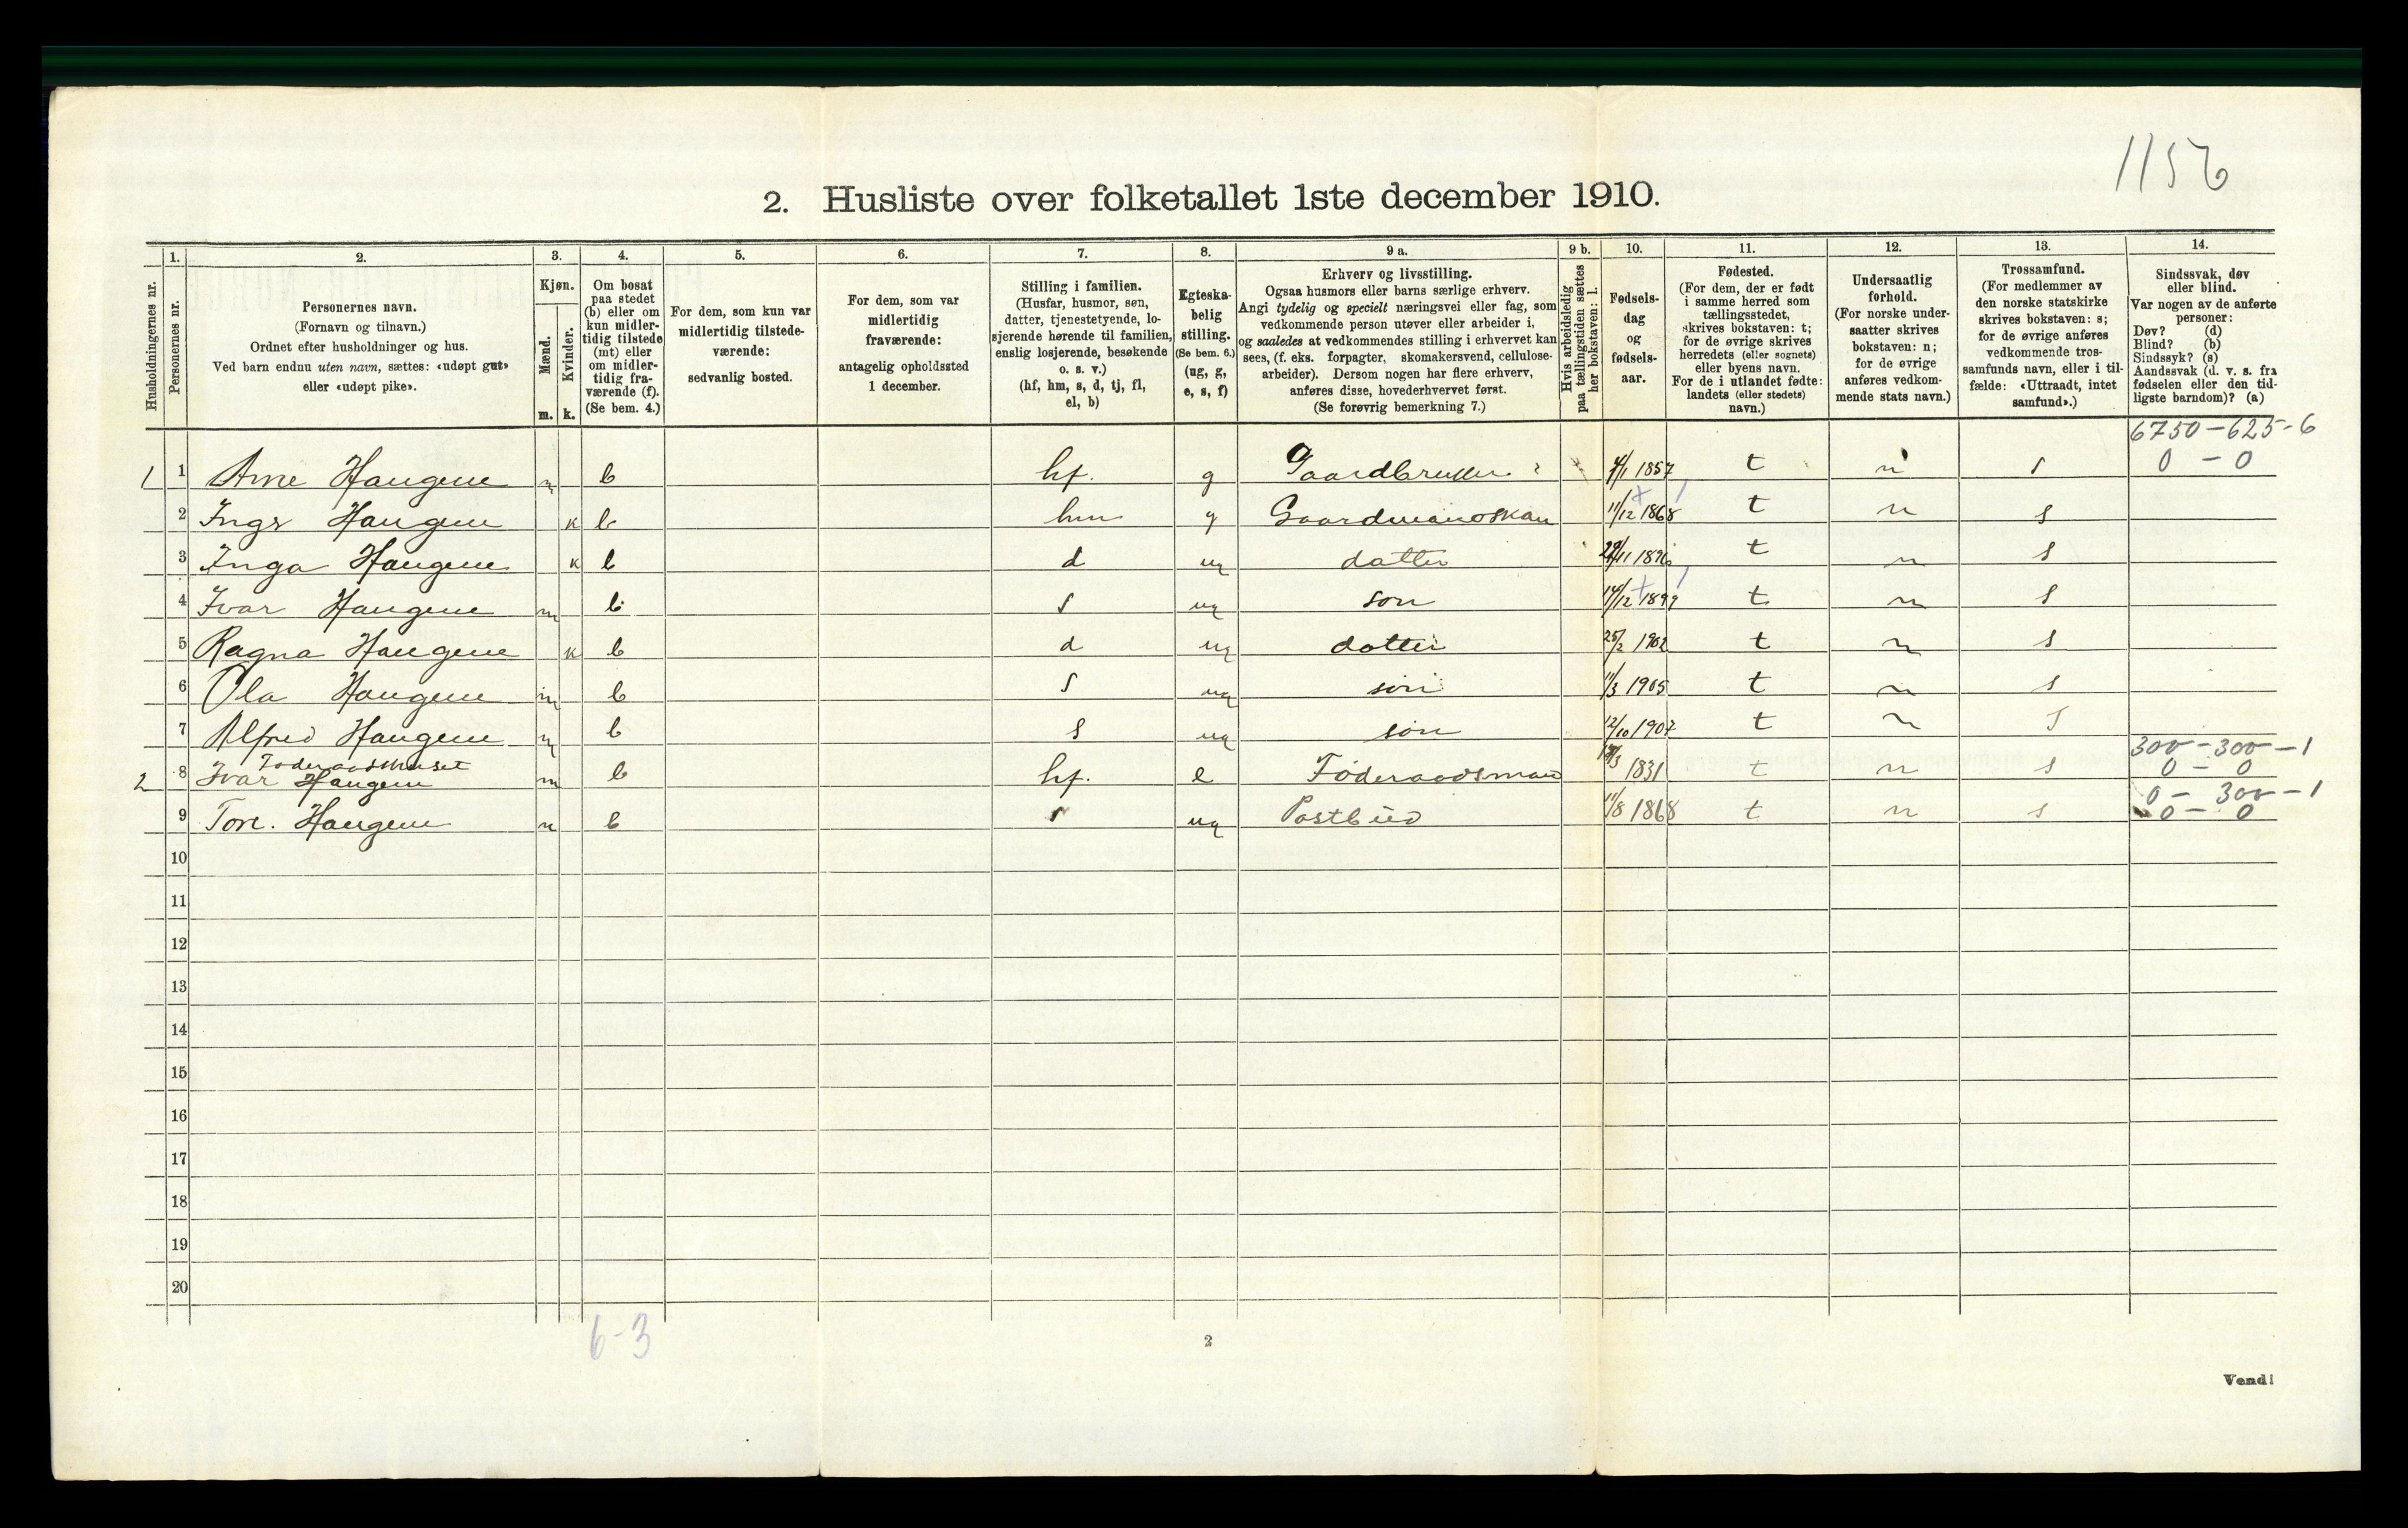 1156
2. Husliste over folketallet 1ste december 1910.
Husholdningernes nr.
1. Personernes nr.
2. Personernes navn.
(Fornavn og tilnavn.)
Ordnet efter husholdninger og hus.
Ved barn endnu uten navn, sættes: «udøpt gut»
eller «udøpt pike».
3. Kjøn.
Mænd. m.
Kvinder. k.
4. Om bosat
paa stedet
(b) eller om
kun midler-
tidig tilstede
(mt) eller
om midler-
tidig fra-
værende (f).
(Se bem. 4.)
5. For dem, som kun var
midlertidig tilstede-
værende:
sedvanlig bosted.
6. For dem, som var
midlertidig
fraværende:
antagelig opholdssted
1 december.
7. Stilling i familien.
(Husfar, husmor, søn,
datter, tjenestetyende, lo-
sjerende hørende til familien,
enslig losjerende, besøkende
o. s. v.)
(hf, hm, s, d, tj, fl,
el, b)
8. Egteska-
belig
stilling.
(Se bem. 6.)
(ug, g,
e, s, f)
9 a. Erhverv og livsstilling.
Ogsaa husmors eller barns særlige erhverv.
Angi tydelig og specielt næringsvei eller fag, som
vedkommende person utøver eller arbeider i,
og saaledes at vedkommendes stilling i erhvervet kan
sees, (f. eks. forpagter, skomakersvend, cellulose-
arbeider). Dersom nogen har flere erhverv,
anføres disse, hovederhvervet først.
(Se forøvrig bemerkning 7.)
9 b. Hvis arbeidsledig
paa tællingstiden sættes
her bokstaven: l.
10. Fødsels-
dag
og
fødsels-
aar.
11. Fødested.
(For dem, der er født
i samme herred som
tællingsstedet,
skrives bokstaven: t;
for de øvrige skrives
herredets (eller sognets)
eller byens navn.
For de i utlandet fødte:
landets (eller stedets)
navn.)
12. Undersaatlig
forhold.
(For norske under-
saatter skrives
bokstaven: n;
for de øvrige
anføres vedkom-
mende stats navn.)
13. Trossamfund.
(For medlemmer av
den norske statskirke
skrives bokstaven: s;
for de øvrige anføres
vedkommende tros-
samfunds navn, eller i til-
fælde: «Uttraadt, intet
samfund».)
14. Sindssvak, døv
eller blind.
Var nogen av de anførte
personer:
Døv? (d)
Blind? (b)
Sindssyk? (s)
Aandssvak (d. v. s. fra
fødselen eller den tid-
ligste barndom)? (a)
6750-625-6
1 1 Arne Haugene m b hf. g Gaardbruker 4/1 1857 t n s 0 - 0
2 Ingr Haugene k b hm g Gaardmandskon 11/12 1868 t n s
3 Inga Haugene k b d ug datter 29/11 1896 t n s
4 Ivar Haugene m b s ug son 14/12 1899 t n s
5 Ragna Haugene k b d ug datter 25/2 1902 t n s
6 Ola Haugene m b s ug son 11/3 1905 t n s
7 Alfred Haugene m b s ug son 12/10 1907 t n s
Føderaadshuset 300-300-1
2 8 Ivar Haugene m b hf. e Føderaadsmand 1831 t n s 0 - 0
0 - 300-1
9 Tore. Haugene m b s ug Postbud 11/8 1868 t n s 0 - 0
10
11
12
13
14
15
16
17
18
19
20
6-3
2
Vend!